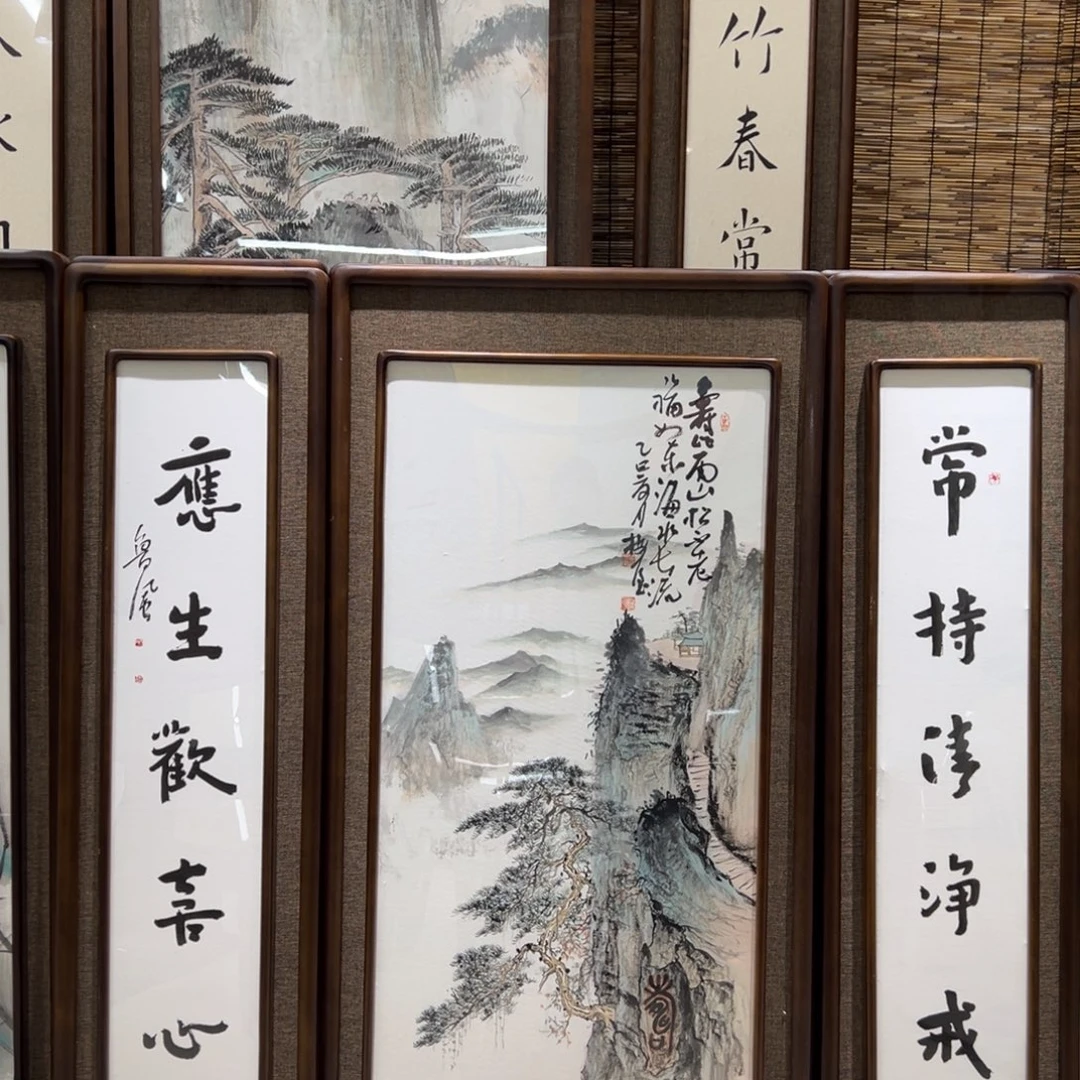 竹春常
常持清浄戒
壽比南山松不老
福如东海水长流
乙巳
應生歡喜心
魯風